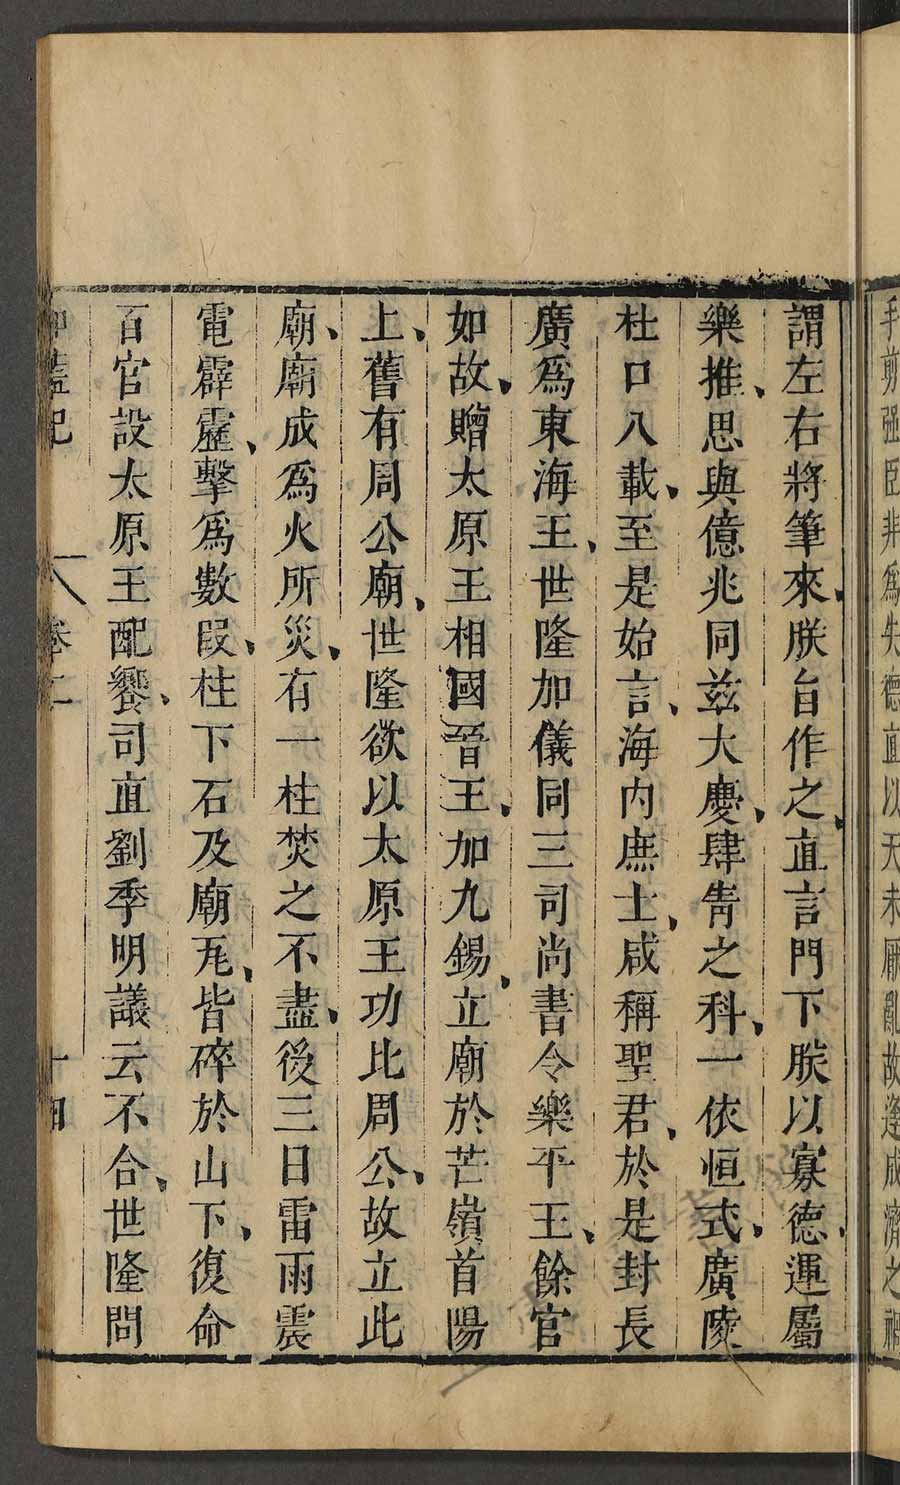 手剪强臣非爲失德直以天未厭亂故逢成濟之禍
謂左右將筆來朕自作之直言門下朕以寡德運屬
樂推思與億兆同兹大慶肆眚之科一依恒式廣陵
杜口八載至是始言海内庶士咸稱聖君於是封長
廣爲東海王世隆加儀同三司尚書令樂平王餘官
如故贈太原王相國晉王加九錫立廟於芒嶺首陽
上舊有周公廟世隆欲以太原王功比周公故立此
廟廟成爲火所災有一柱焚之不盡後三日雷雨震
電霹靂擊爲數段柱下石及廟瓦皆碎於山下復命
百官設太原王配饗司直劉季明議云不合世隆問
伽藍記 卷二 十四